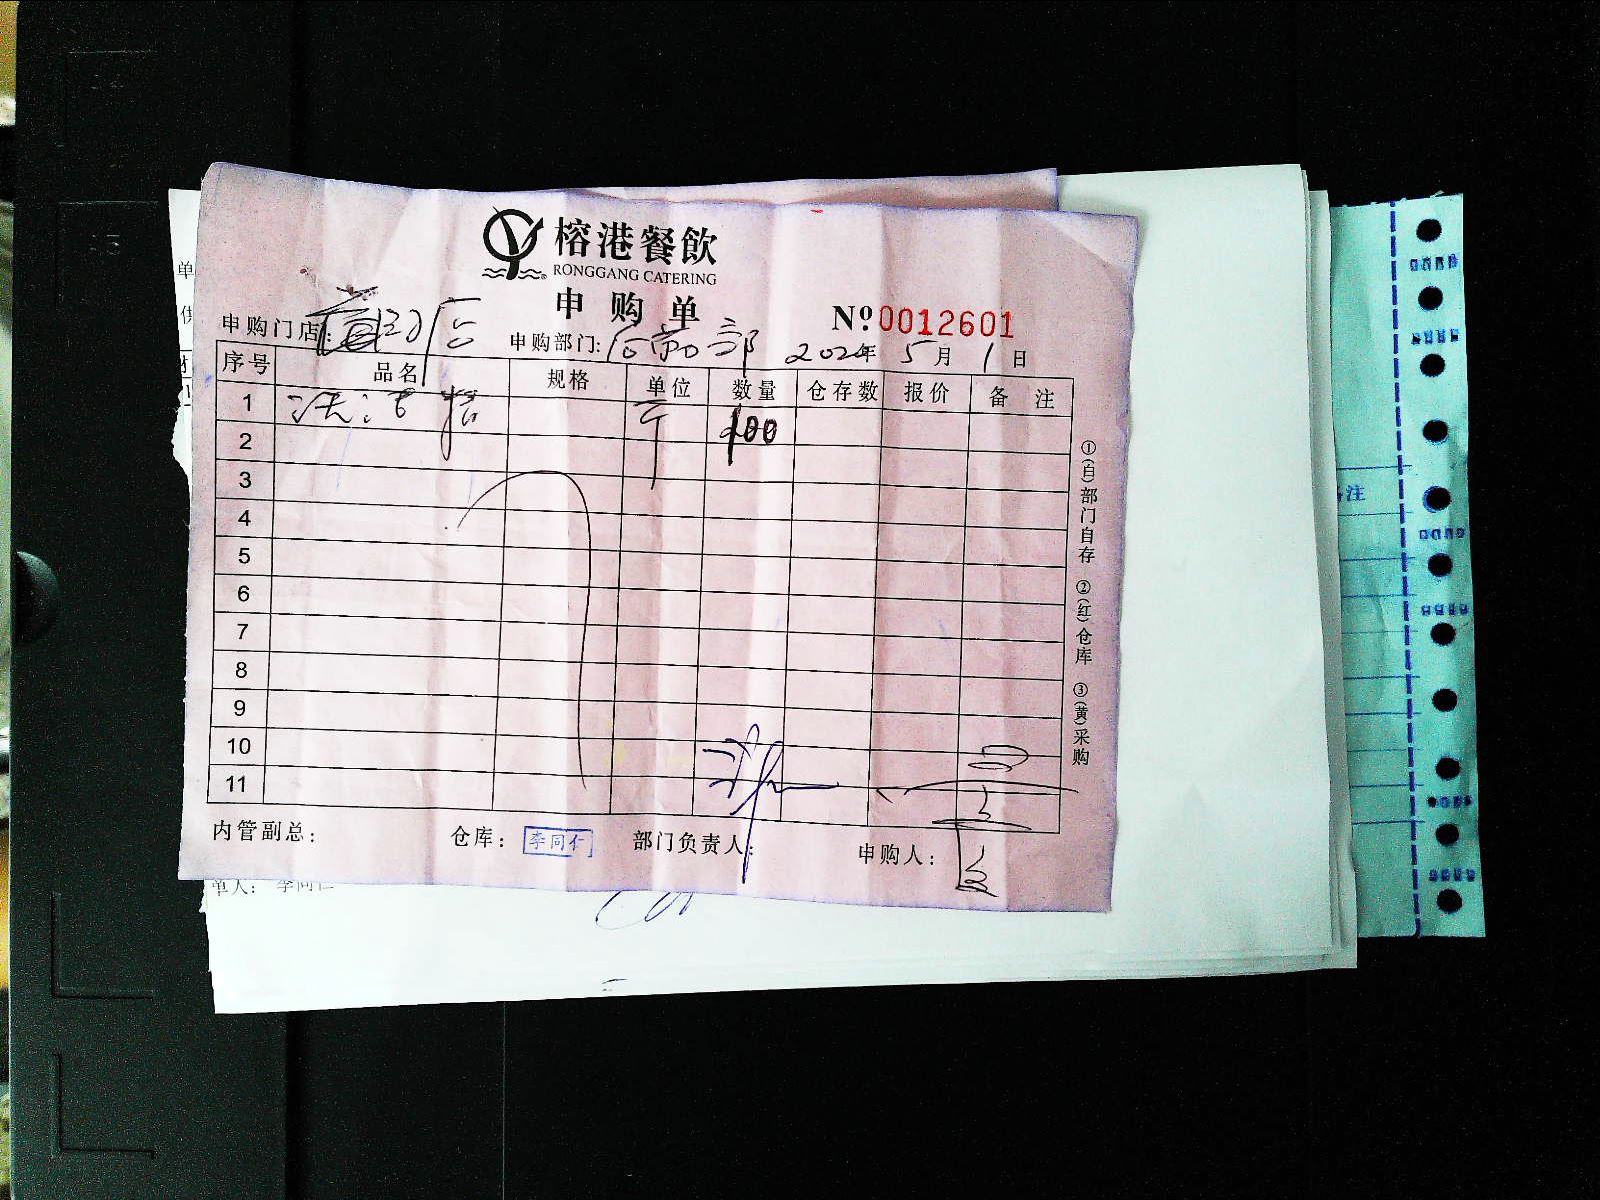 榕港餐飲
RONGGANG CATERING
申购单
№ 0012601
申购门店:
申购部门: 部 年 5月1日
序号 品名 规格 单位 数量 仓存数 报价 备注
1 100
2
3
4
5
6
7
8
9
10
11
①(白)部门自存 ②(红)仓库 ③(黄)采购
内管副总: 仓库: 李同仁 部门负责人: 申购人:
单
供
单人: 李同仁
注